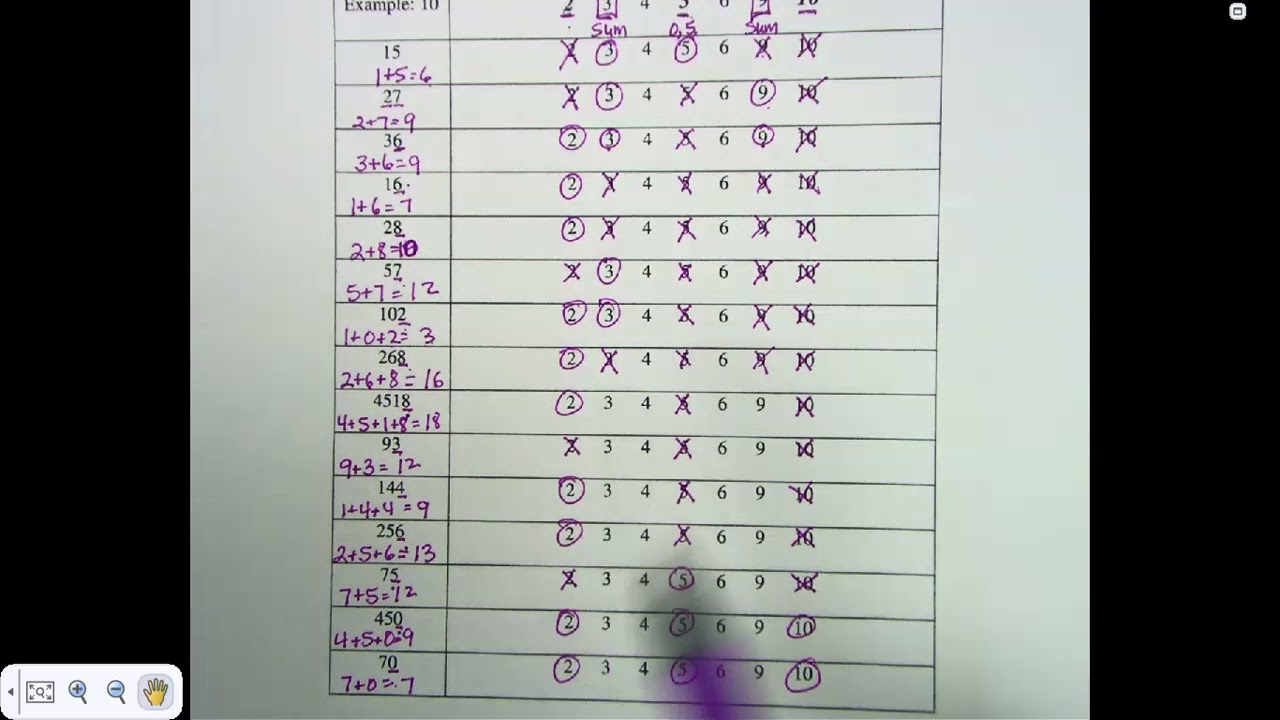 Example: 10 2 3 4 5 6 9 10
Sum 0,5 Sum
15 2 3 4 5 6 9 10
1+5=6
27 2 3 4 5 6 9 10
2+7=9
36 2 3 4 5 6 9 10
3+6=9
16 2 3 4 5 6 9 10
1+6=7
28 2 3 4 5 6 9 10
2+8=10
57 2 3 4 5 6 9 10
5+7=12
102 2 3 4 5 6 9 10
1+0+2=3
268 2 3 4 5 6 9 10
2+6+8=16
4518 2 3 4 5 6 9 10
4+5+1+8=18
93 2 3 4 5 6 9 10
9+3=12
144 2 3 4 5 6 9 10
1+4+4=9
256 2 3 4 5 6 9 10
2+5+6=13
75 2 3 4 5 6 9 10
7+5=12
450 2 3 4 5 6 9 10
4+5+0=9
70 2 3 4 5 6 9 10
7+0=7